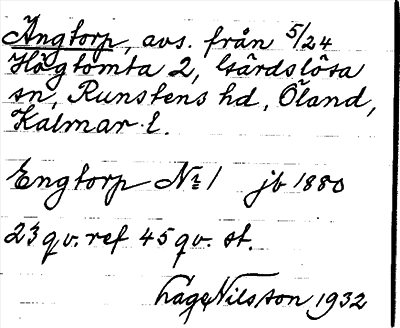 Ängtorp, avs. från 5/24
Högtomta 2, Gärdslösa
sn, Runstens hd, Öland,
Kalmar l.
Engtorp № 1 jb 1880
23 qv. ref 45 qv. st.
Låge Nilsson 1932